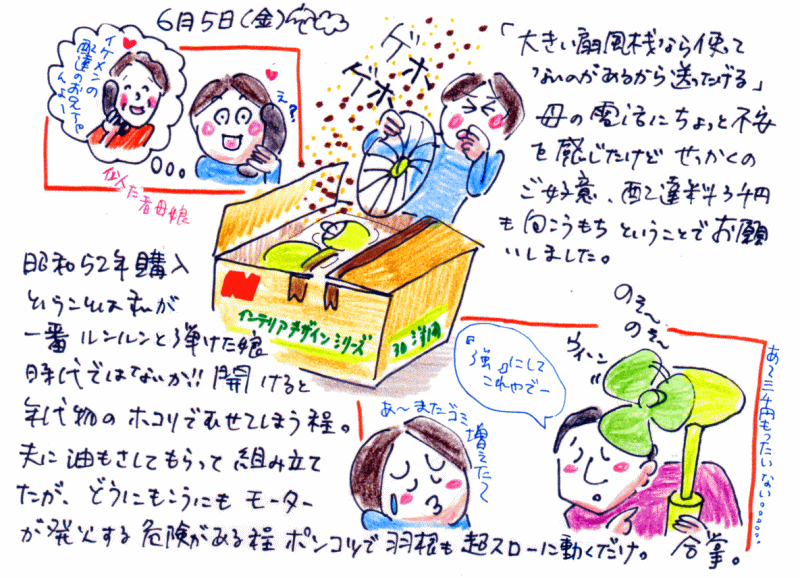 6月5日(金)
イケメンの
配達のお兄ちゃ
んよ〜
え?
似た者母娘
ゲホ
ゲホ
「大きい扇風機なら使って
ないのがあるから送ったげる」
母の電話にちょっと不安
を感じたけどせっかくの
ご好意、配達料3千円
も向こうもちということでお願
いしました。
昭和52年購入
ということは私が
一番ルンルンと弾けた娘
時代ではないか!!開けると
年代物のホコリでむせてしまう程。
夫に油もさしてもらって組み立て
たが、どうにもこうにもモーター
が発火する危険がある程ポンコツで羽根も超スローに動くだけ。合掌。
インテリアデザインシリーズ
30
あ〜またゴミ
増えた〜
『強』にして
これやで〜
のそ〜
のそ〜
ウィーン
あ〜三千円もったいない。。。。。。。